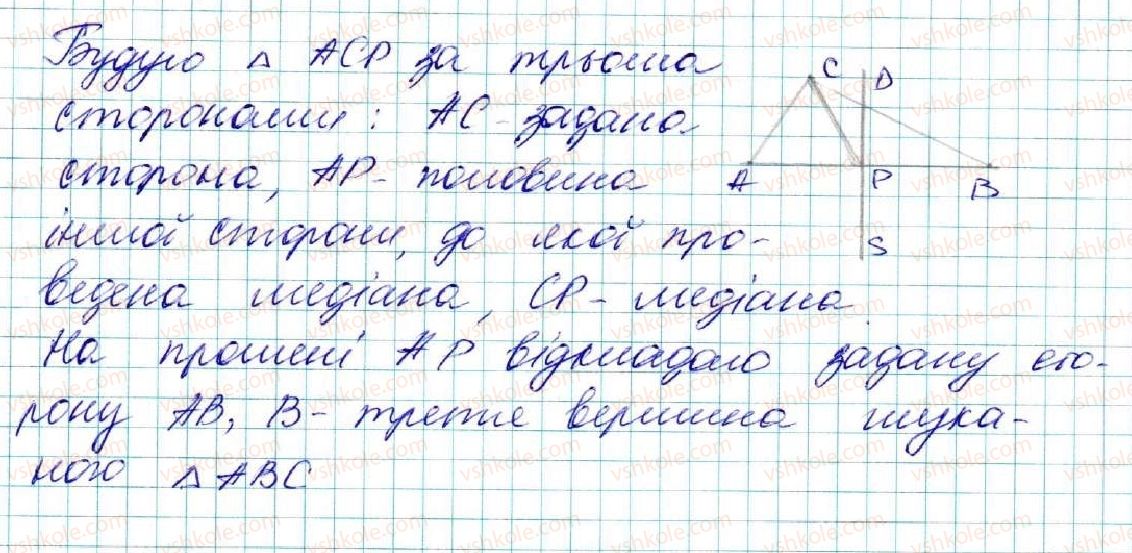 Будую △ ACP за трьома
сторонами: AC - задана
сторона, AP - половина
іншої сторони, до якої про-
ведена медіана, CP - медіана
На промені AP відкладаю задану сто-
рону AB, B - третя вершина шука-
ного △ ABC
C D
A P B
S
vshkole.com